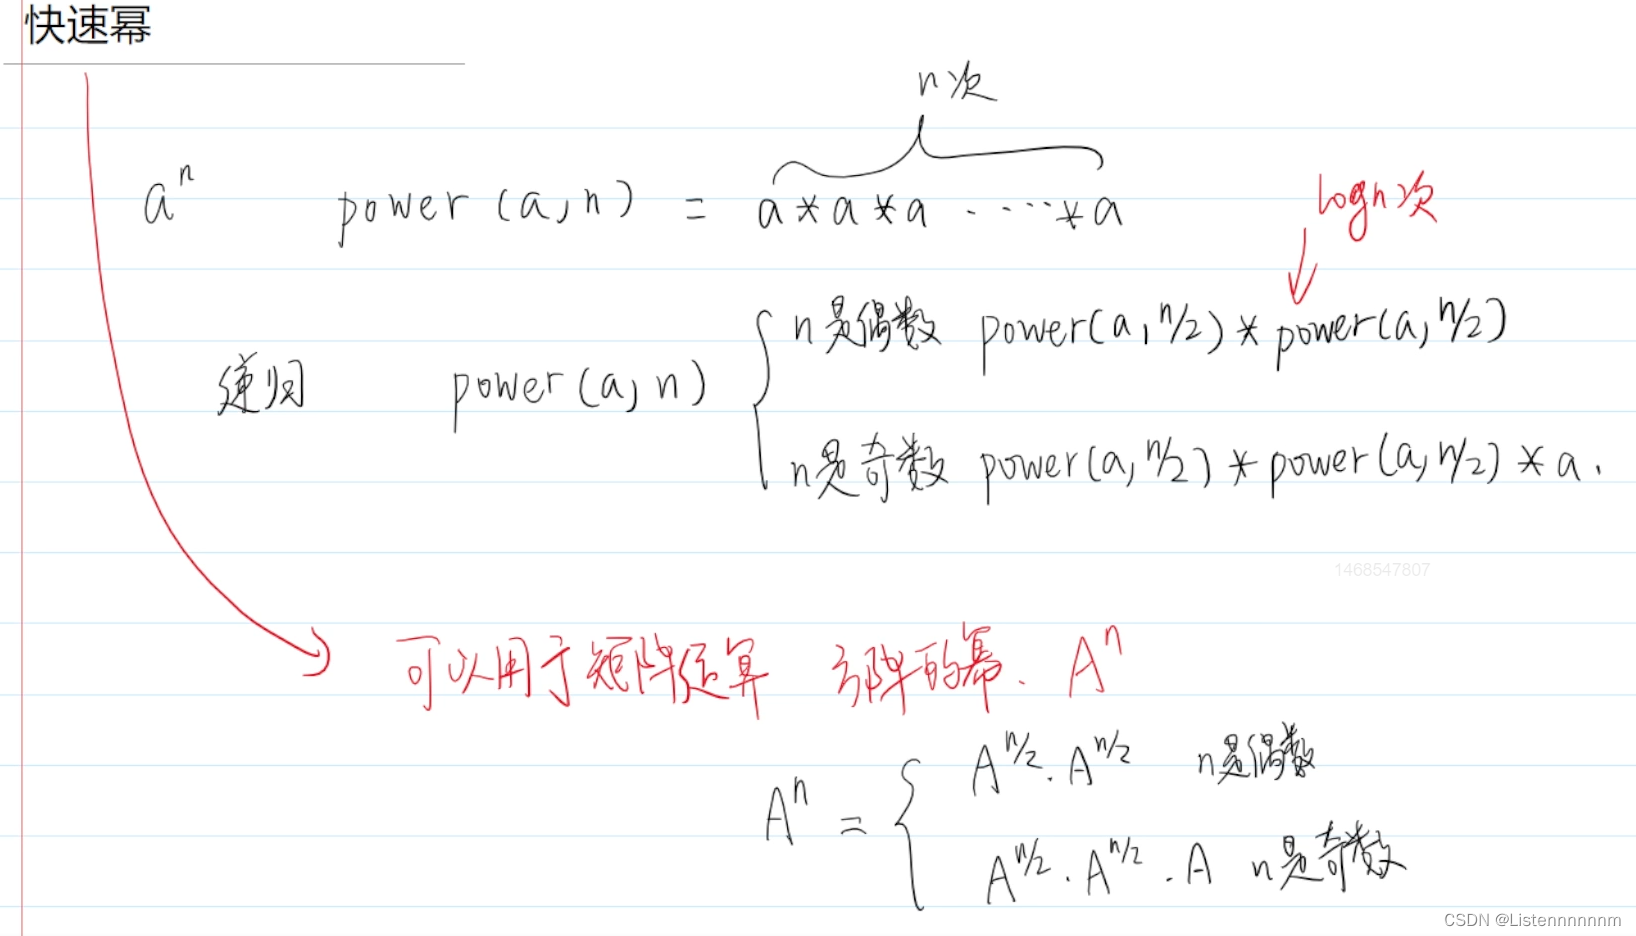 快速幂
n次
aⁿ power(a,n) = a*a*a ·····*a
logn次
n是偶数 power(a,n/2)*power(a,n/2)
递归 power(a,n)
n是奇数 power(a,n/2)*power(a,n/2)*a.
1468547807
可以用于矩阵运算 方阵的幂. Aⁿ
A^n/2 · A^n/2 n是偶数
Aⁿ =
A^n/2 · A^n/2 · A n是奇数
CSDN @Listennnnnnm